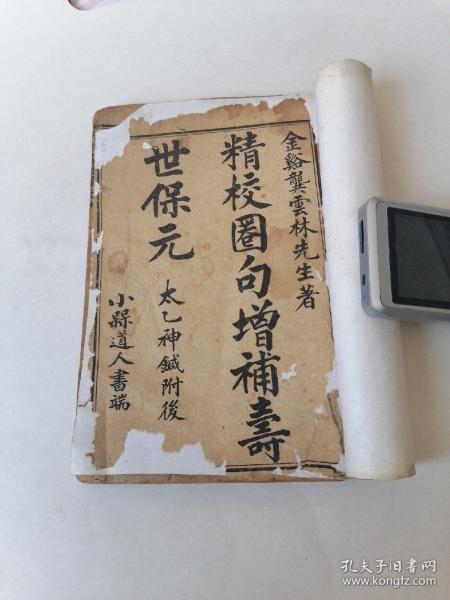 金谿龔雲林先生著
精校圈句增補壽
世保元
太乙神鍼附後
小䋭道人書端
孔夫子旧书网
www.kongfz.com